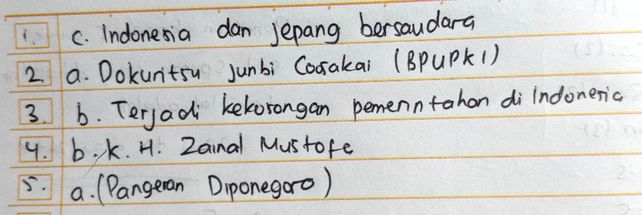 1. c. Indonesia dan jepang bersaudara
2 a. Dokuritsu Junbi Coosakai (BPUPKI)
3. b. Terjadi kekosongan pemerintahan di Indonesia
4. b. K. H. Zainal Mustofa
5. a. (Pangeran Diponegoro)